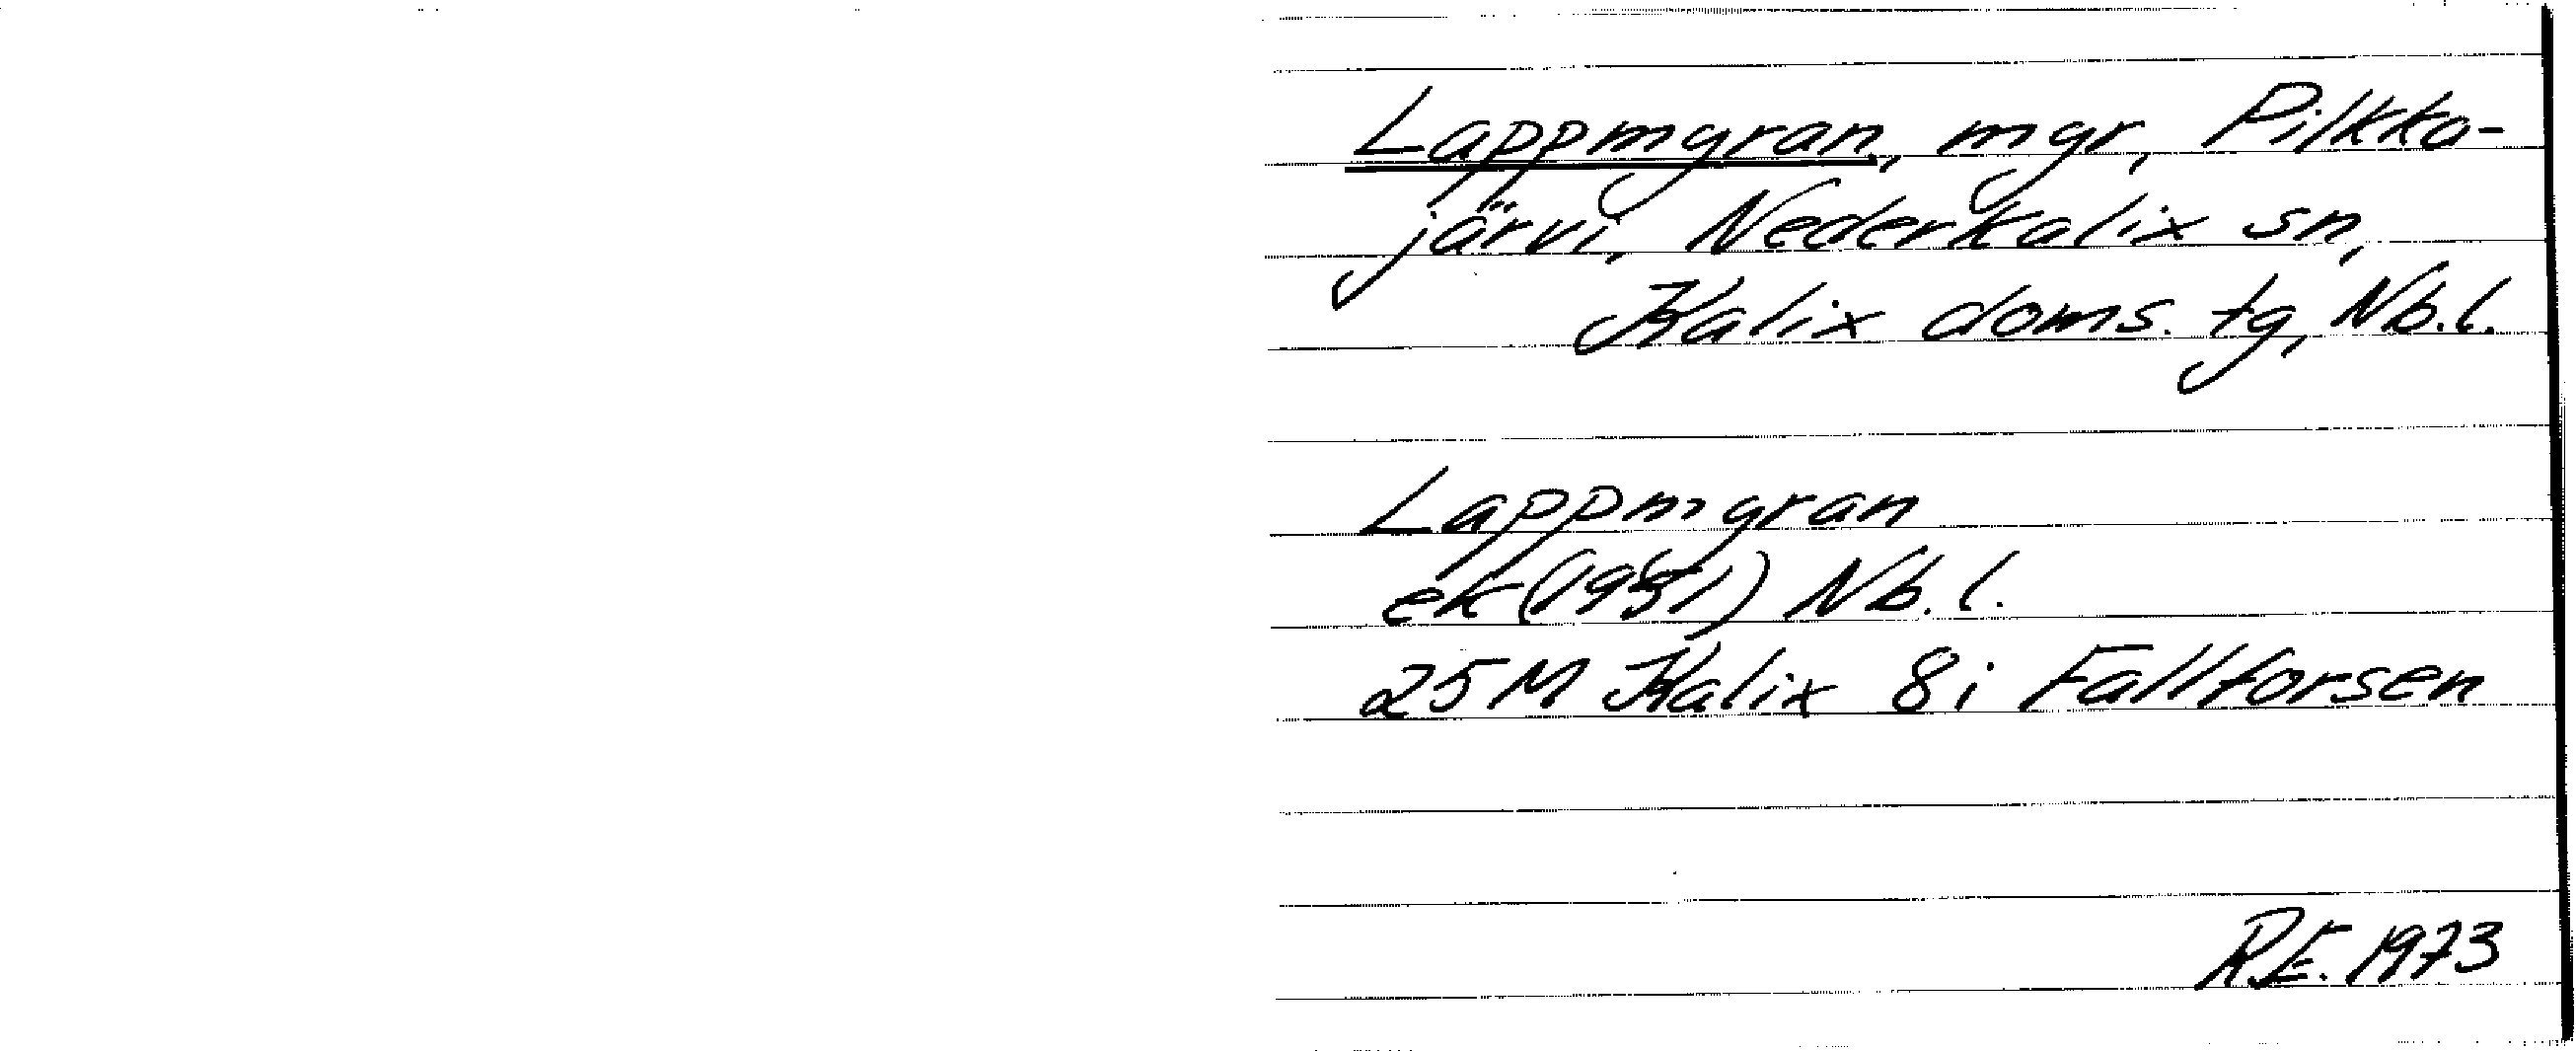 Lappmyran, myr, Pilkka-
järvi, Nederkalix sn,
Kalix doms. tg, Nb.l.
Lappmyran
ek (1951) Nb.l.
25M Kalix 8i Fallforsen
R.E. 1973